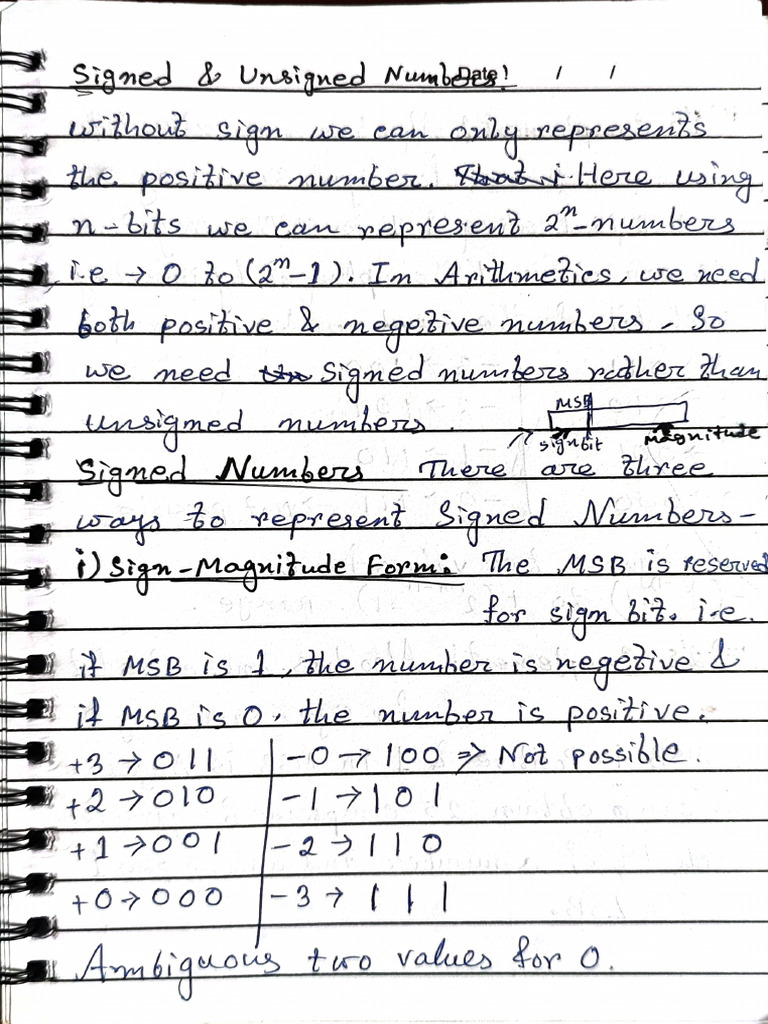 Signed & Unsigned Numbers: Date: / /
without sign we can only represents
the positive number. Here using
n-bits we can represent 2ⁿ-numbers
i.e → 0 to (2ⁿ-1). In Arithmetics, we need
both positive & negetive numbers. So
we need Signed numbers rather than
unsigned numbers.
MSB
sign bit magnitude
Signed Numbers There are three
ways to represent Signed Numbers-
i) Sign-Magnitude Form: The MSB is reserved
for sign bit. i.e.
if MSB is 1, the number is negetive &
if MSB is 0, the number is positive.
+3 → 011 -0 → 100 ⇒ Not possible.
+2 → 010 -1 → 101
+1 → 001 -2 → 110
+0 → 000 -3 → 111
Ambiguous two values for 0.